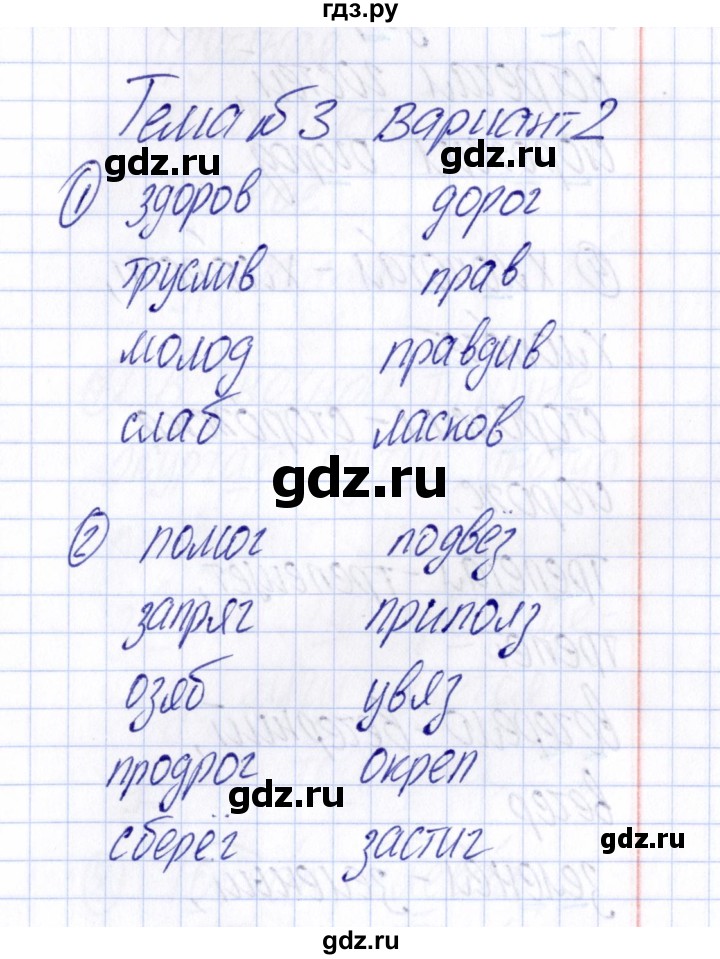 гдз.ру
Тема №3 вариант 2
gdz.ru gdz.ru
① здоров дорог
труслив прав
молод правдив
слаб ласков
gdz.ru
② помог подвёз
запряг приполз
озяб увяз
продрог окреп
gdz.ru
сберёг застиг
gdz.ru
gdz.ru